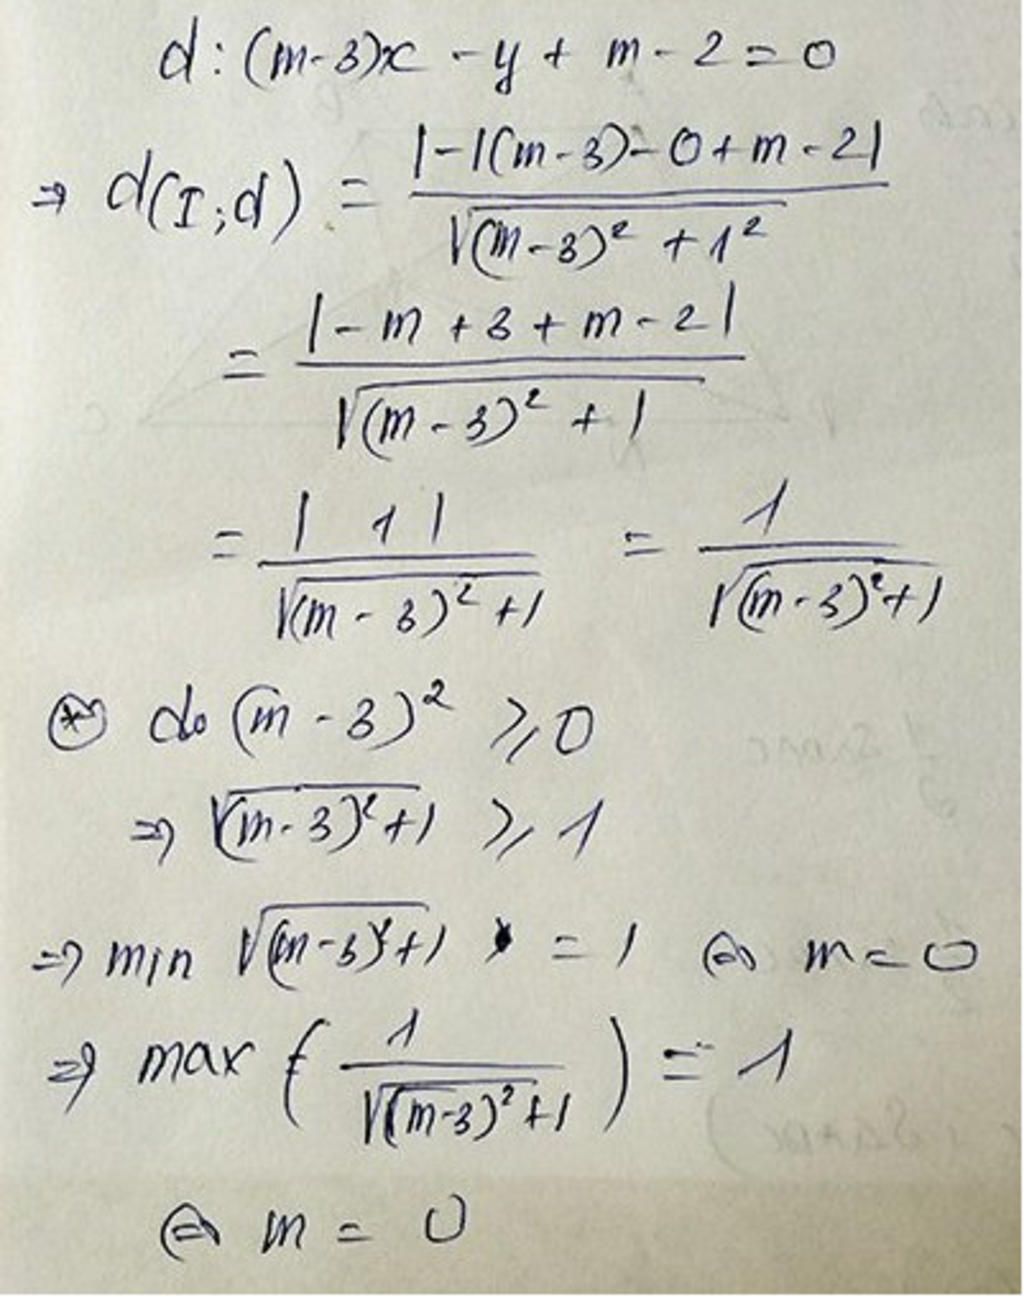 d: (m-3)x - y + m - 2 = 0
⇒ d(I;d) = |-1(m-3)-0+m-2| / √((m-3)² + 1²)
= |-m+3+m-2| / √((m-3)² + 1)
= |1| / √((m-3)²+1) = 1 / √((m-3)²+1)
⊛ do (m-3)² ⩾ 0
⇒ √((m-3)²+1) ⩾ 1
⇒ min √((m-3)²+1) = 1 ⇔ m = 0
⇒ max (1 / √((m-3)²+1)) = 1
⇔ m = 0